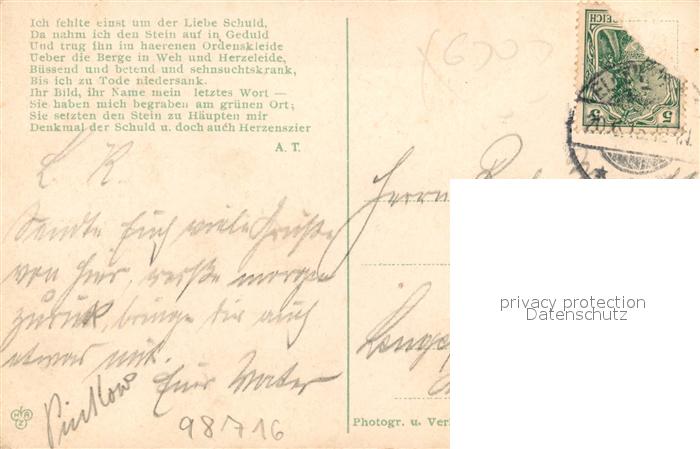 Ich fehlte einst um der Liebe Schuld,
Da nahm ich den Stein auf in Geduld
Und trug ihn im haerenen Ordenskleide
Ueber die Berge in Weh und Herzeleide,
Büssend und betend und sehnsuchtskrank,
Bis ich zu Tode niedersank.
Ihr Bild, ihr Name mein letztes Wort —
Sie haben mich begraben am grünen Ort;
Sie setzten den Stein zu Häupten mir
Denkmal der Schuld u. doch auch Herzenszier
A. T.
L. K.
Sende Euch viele Grüße
von hier, reise morgen
zurück, bringe dir auch
etwas mit.
Euer Vater
98716
Herrn
REICH
5 5
privacy protection
Datenschutz
Photogr. u. Ver